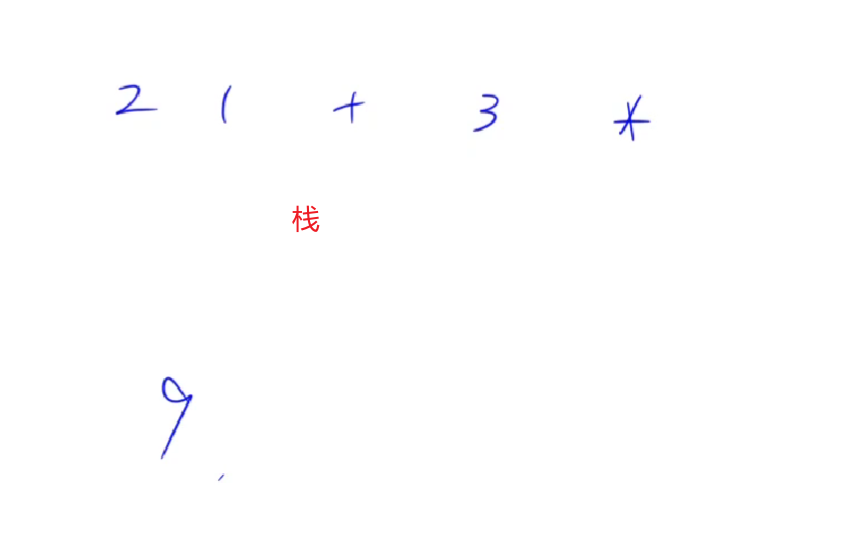 2 1 + 3 *
栈
9